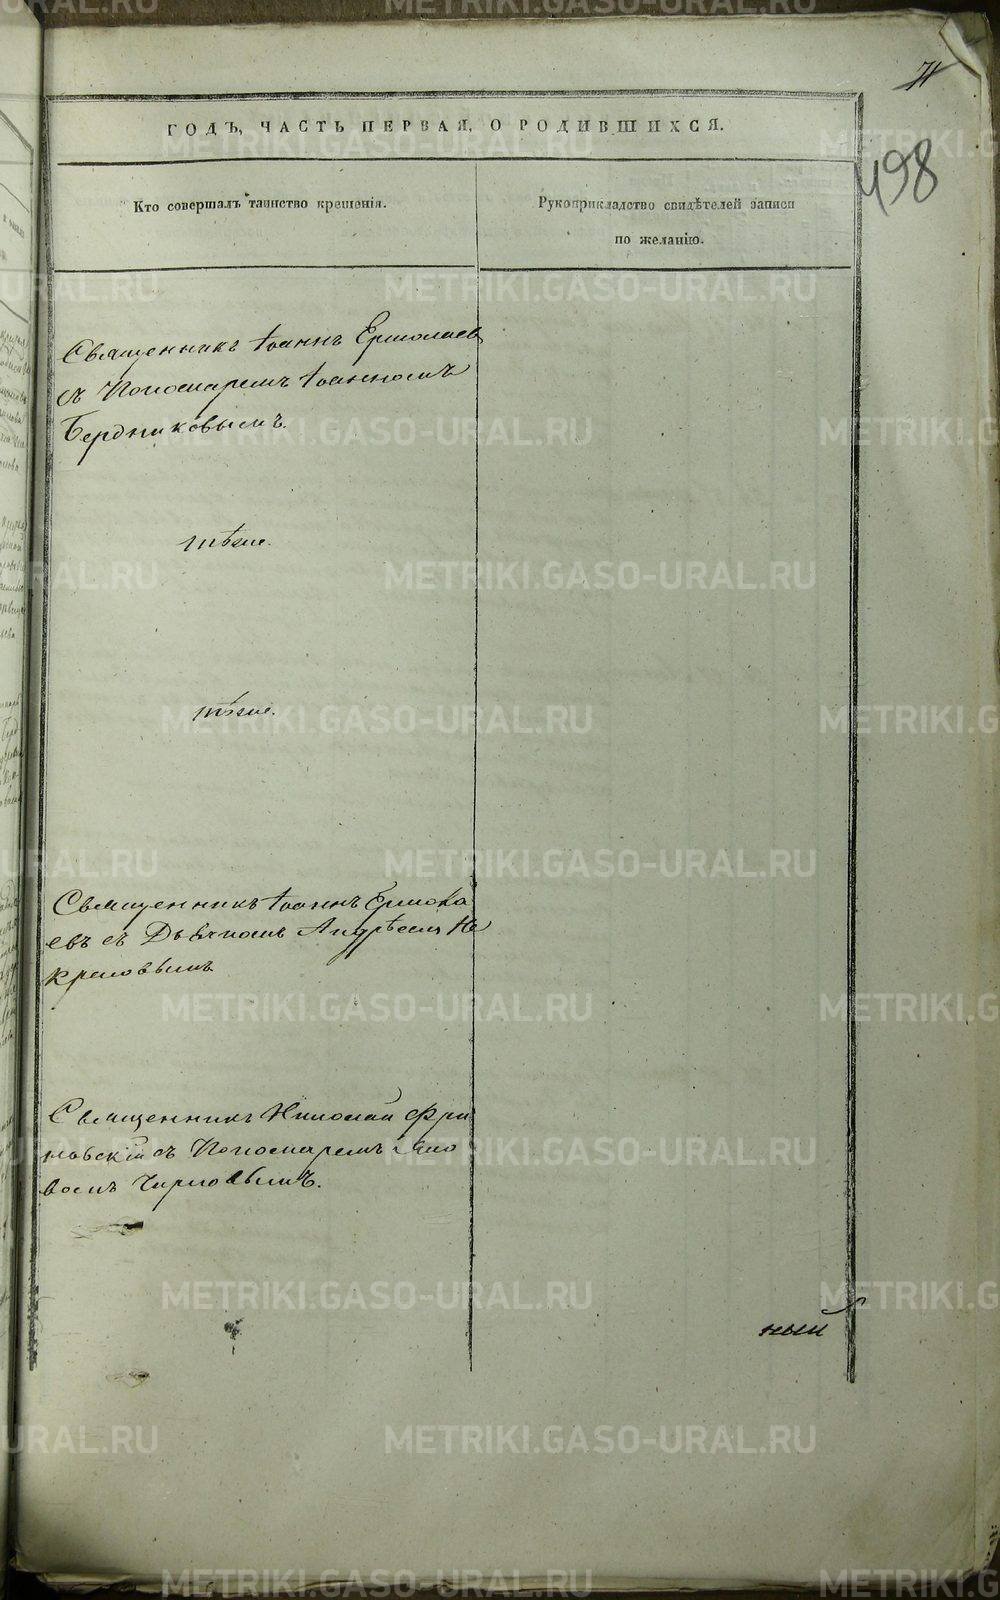 498
ГОДЪ, ЧАСТЬ ПЕРВАЯ, О РОДИВШИХСЯ.
Кто совершалъ таинство крещенія.
Рукоприкладство свидѣтелей записи
по желанію.
Священникъ Іоаннъ Ермолаев
съ Пономаремъ Іоанномъ
Бердниковымъ.
тѣже.
тѣже.
Священникъ Іоаннъ Ермола
евъ съ Дьячкомъ Андрѣемъ Не
красовымъ
Священникъ Николай Фри
новскій съ Пономаремъ Яко
вомъ Чирковымъ.
ный
METRIKI.GASO-URAL.RU